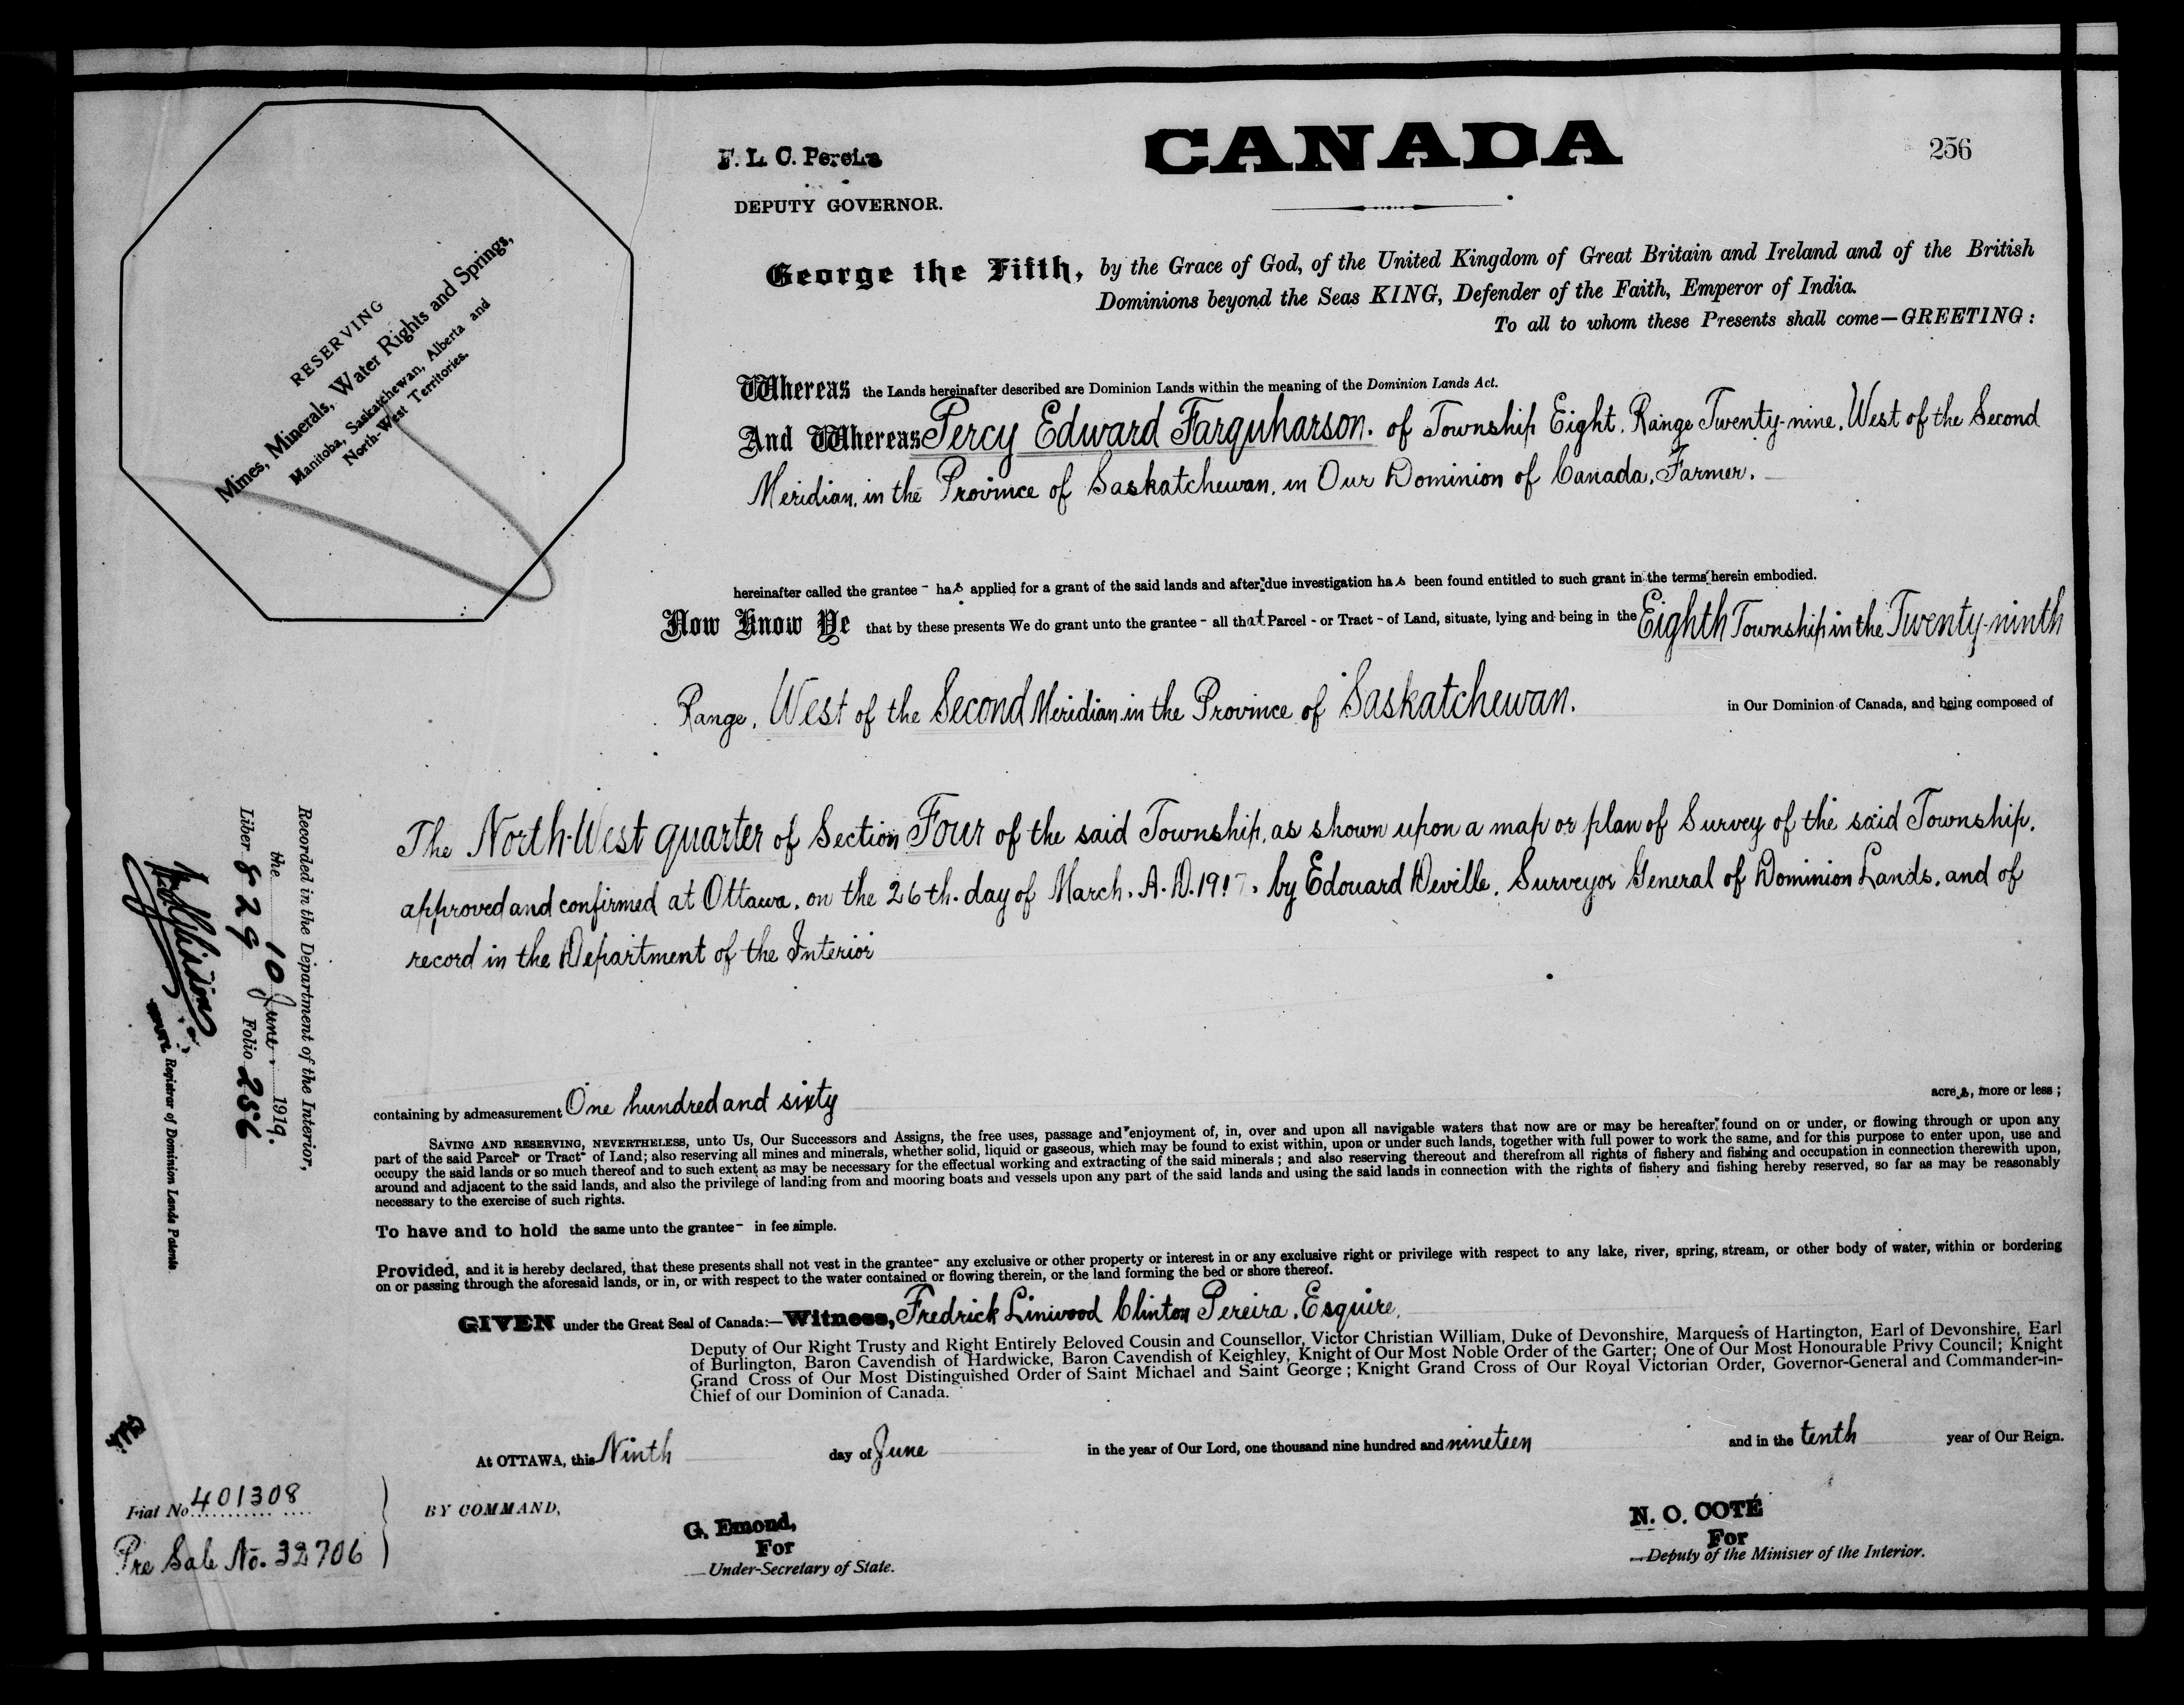 CANADA
256
F. L. C. Pereira
DEPUTY GOVERNOR.
RESERVING
Mimes, Minerals, Water Rights and Springs,
Manitoba, Saskatchewan, Alberta and
North-West Territories.
George the Fifth, by the Grace of God, of the United Kingdom of Great Britain and Ireland and of the British
Dominions beyond the Seas KING, Defender of the Faith, Emperor of India.
To all to whom these Presents shall come—GREETING:
Whereas the Lands hereinafter described are Dominion Lands within the meaning of the Dominion Lands Act.
And Whereas Percy Edward Farquharson. of Township Eight, Range Twenty-nine, West of the Second
Meridian, in the Province of Saskatchewan, in Our Dominion of Canada, Farmer.
hereinafter called the grantee - has applied for a grant of the said lands and after due investigation has been found entitled to such grant in the terms herein embodied.
Now Know Ye that by these presents We do grant unto the grantee - all that Parcel - or Tract - of Land, situate, lying and being in the Eighth Township in the Twenty-ninth
Range, West of the Second Meridian in the Province of Saskatchewan. in Our Dominion of Canada, and being composed of
The North-West quarter of Section Four of the said Township, as shown upon a map or plan of Survey of the said Township,
approved and confirmed at Ottawa, on the 26th. day of March, A.D. by Edouard Deville, Surveyor General of Dominion Lands, and of
record in the Department of the Interior
containing by admeasurement One hundred and sixty acres, more or less;
SAVING AND RESERVING, NEVERTHELESS, unto Us, Our Successors and Assigns, the free uses, passage and enjoyment of, in, over and upon all navigable waters that now are or may be hereafter found on or under, or flowing through or upon any
part of the said Parcel- or Tract- of Land; also reserving all mines and minerals, whether solid, liquid or gaseous, which may be found to exist within, upon or under such lands, together with full power to work the same, and for this purpose to enter upon, use and
occupy the said lands or so much thereof and to such extent as may be necessary for the effectual working and extracting of the said minerals; and also reserving thereout and therefrom all rights of fishery and fishing and occupation in connection therewith upon,
around and adjacent to the said lands, and also the privilege of landing from and mooring boats and vessels upon any part of the said lands and using the said lands in connection with the rights of fishery and fishing hereby reserved, so far as may be reasonably
necessary to the exercise of such rights.
To have and to hold the same unto the grantee- in fee simple.
Provided, and it is hereby declared, that these presents shall not vest in the grantee- any exclusive or other property or interest in or any exclusive right or privilege with respect to any lake, river, spring, stream, or other body of water, within or bordering
on or passing through the aforesaid lands, or in, or with respect to the water contained or flowing therein, or the land forming the bed or shore thereof.
GIVEN under the Great Seal of Canada:—Witness, Fredrick Linwood Clinton Pereira, Esquire,
Deputy of Our Right Trusty and Right Entirely Beloved Cousin and Counsellor, Victor Christian William, Duke of Devonshire, Marquess of Hartington, Earl of Devonshire, Earl
of Burlington, Baron Cavendish of Hardwicke, Baron Cavendish of Keighley, Knight of Our Most Noble Order of the Garter; One of Our Most Honourable Privy Council; Knight
Grand Cross of Our Most Distinguished Order of Saint Michael and Saint George; Knight Grand Cross of Our Royal Victorian Order, Governor-General and Commander-in-
Chief of our Dominion of Canada.
At OTTAWA, this Ninth day of June in the year of Our Lord, one thousand nine hundred and nineteen and in the tenth year of Our Reign.
BY COMMAND,
G. Emond,
For
Under-Secretary of State.
N. O. COTÉ
For
Deputy of the Minister of the Interior.
Fiat No 401308
Pre Sale No. 32706
Recorded in the Department of the Interior,
the 10 June 1919.
Liber 829 Folio 256
Registrar of Dominion Lands Patents